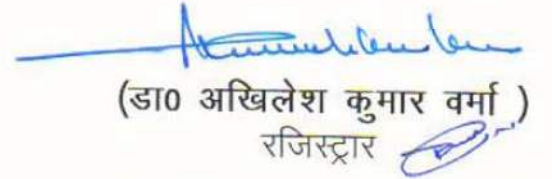 (डा0 अखिलेश कुमार वर्मा )
रजिस्ट्रार